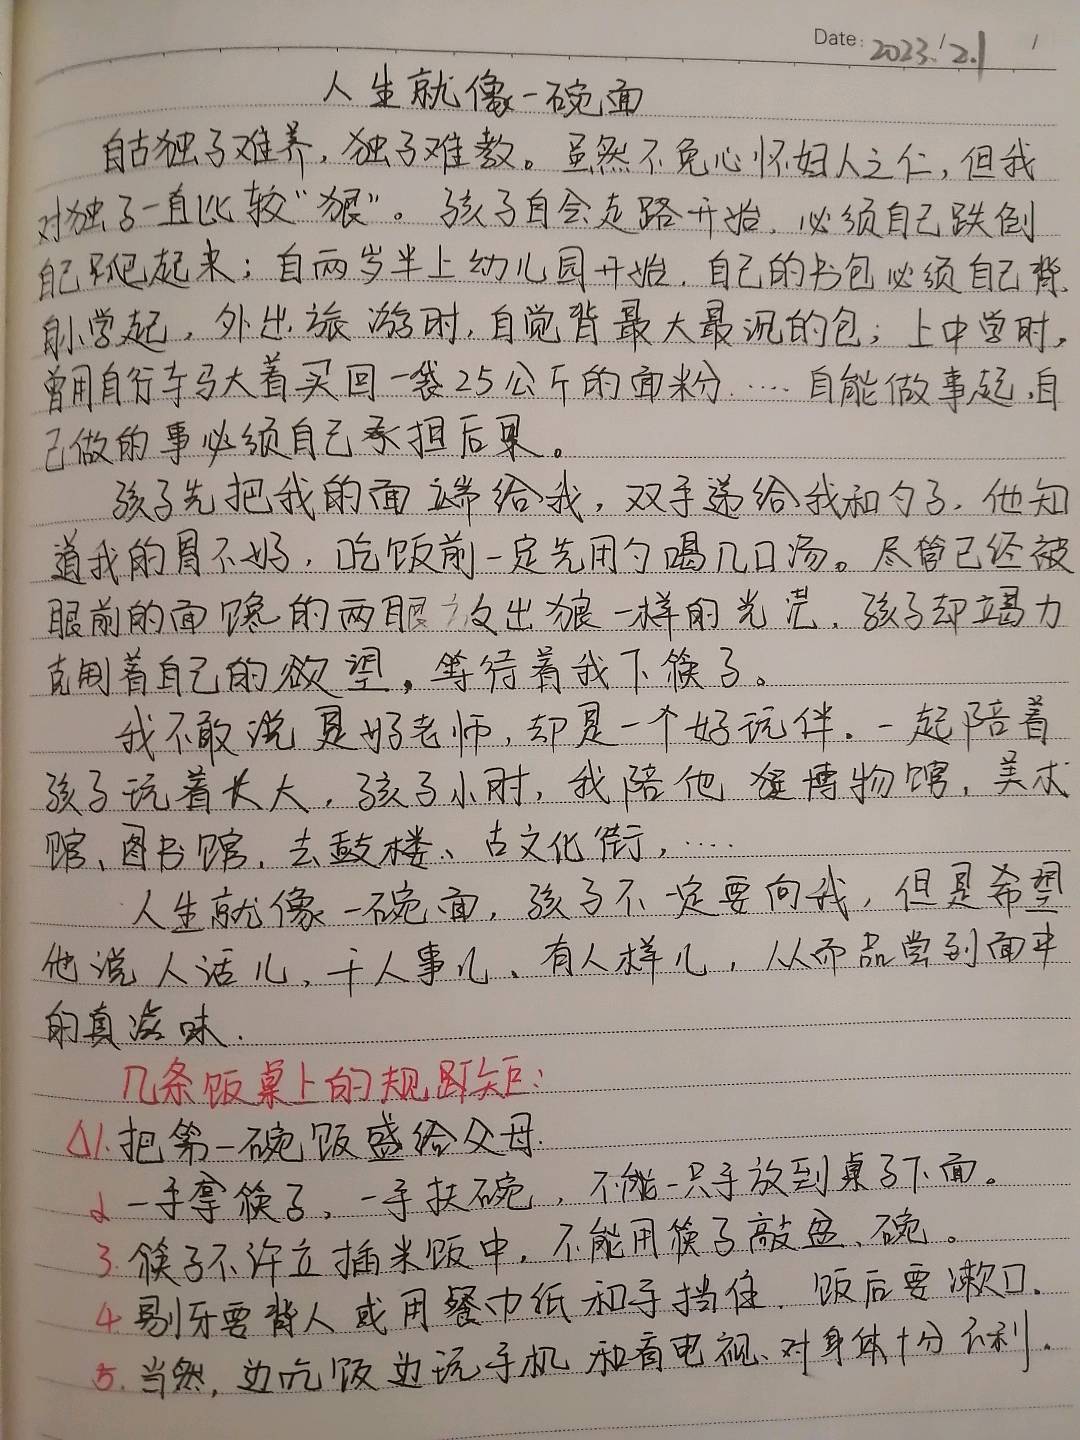 Date: 2023.2.1
人生就像一碗面
自古独子难养，独子难教。虽然不免心怀妇人之仁，但我
对独子一直比较“狠”。孩子自会走路开始，必须自己跌倒
自己爬起来；自两岁半上幼儿园开始，自己的书包必须自己背，
自小学起，外出旅游时，自觉背最大最沉的包；上中学时，
曾用自行车马大着买回一袋25公斤的面粉……自能做事起，自
己做的事必须自己承担后果。
孩子先把我的面端给我，双手递给我和勺子，他知
道我的胃不好，吃饭前一定先用勺喝几口汤。尽管已经被
眼前的面馋的两眼放出狼一样的光芒，孩子却竭力
克制着自己的欲望，等待着我下筷子。
我不敢说是好老师，却是一个好玩伴。一起陪着
孩子玩着长大，孩子小时，我陪他逛博物馆，美术
馆、图书馆，去鼓楼、古文化街，……
人生就像一碗面，孩子不一定要向我，但是希望
他说人话儿，干人事儿、有人样儿，从而品尝到面中
的真滋味.
几条饭桌上的规矩：
△1.把第一碗饭盛给父母.
2 一手拿筷子，一手扶碗，不能一只手放到桌子下面。
3.筷子不许立插米饭中，不能用筷子敲盘、碗。
4.剔牙要背人或用餐巾纸和手挡住，饭后要漱口.
5.当然，边吃饭边玩手机和看电视、对身体十分不利.